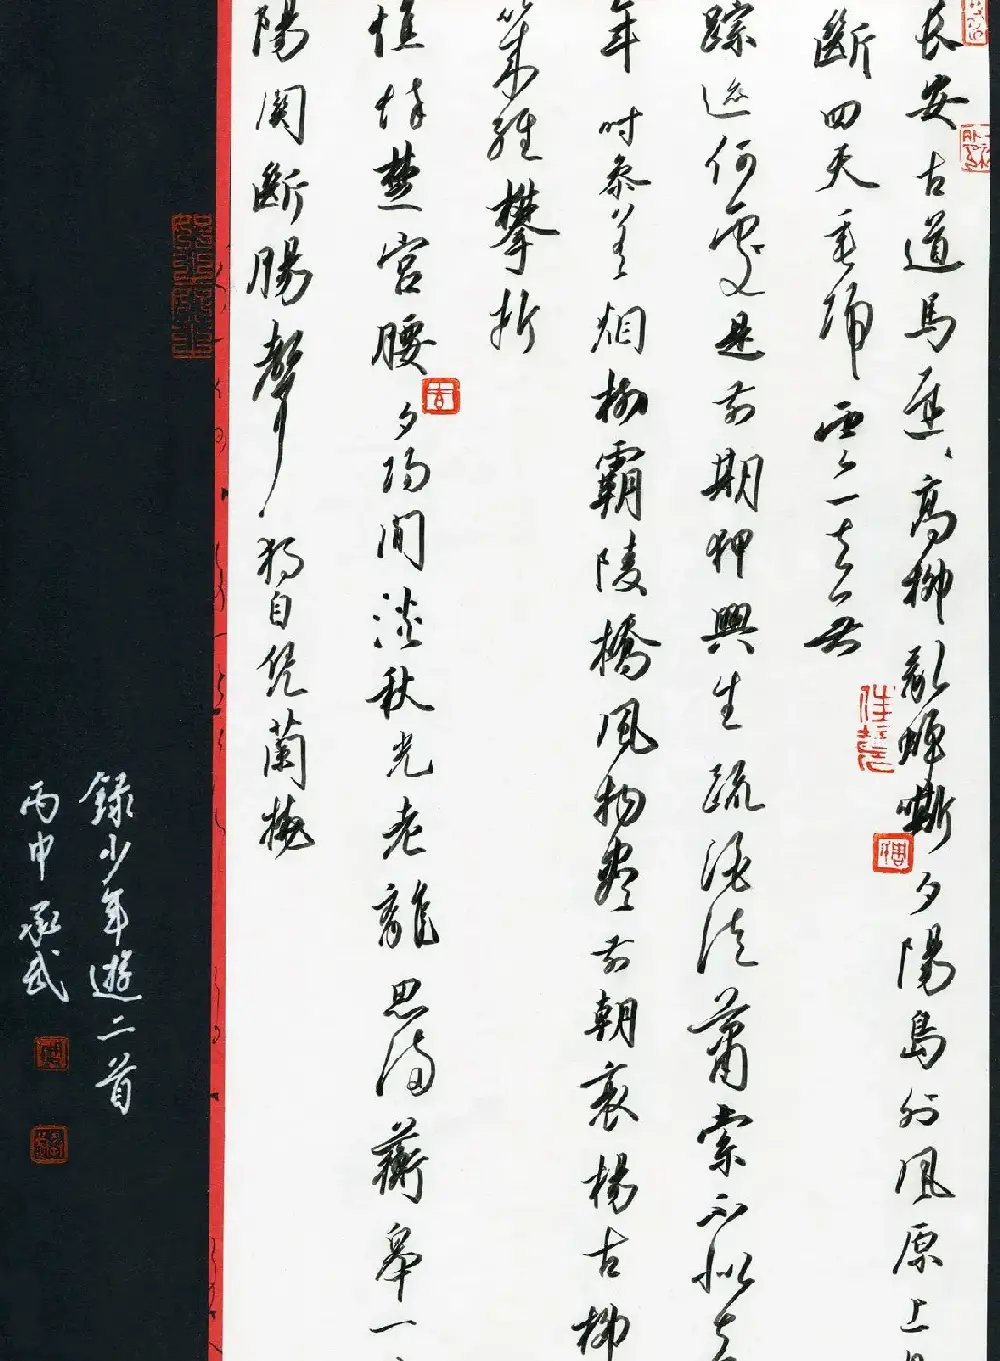 長安古道馬遲〻高柳亂蟬嘶夕陽島外風原上目
斷四天垂歸雲一去無
踪迹何處是前期狎興生疏酒徒蕭索不似去
年時參差烟樹霸陵橋風物盡前朝衰楊古柳
幾經攀折
憔悴楚宮腰夕陽閒淡秋光老離思滿蘅皋一
陽關斷腸聲獨自凭蘭橈
錄少年遊二首
丙申承武